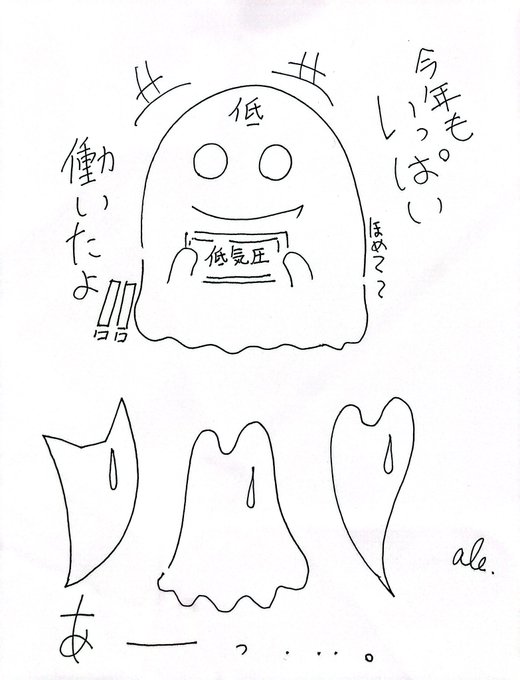 今年も
いっぱい
働いたよ!!
低
低気圧
ほめてて
あーっ・・・。
ale.